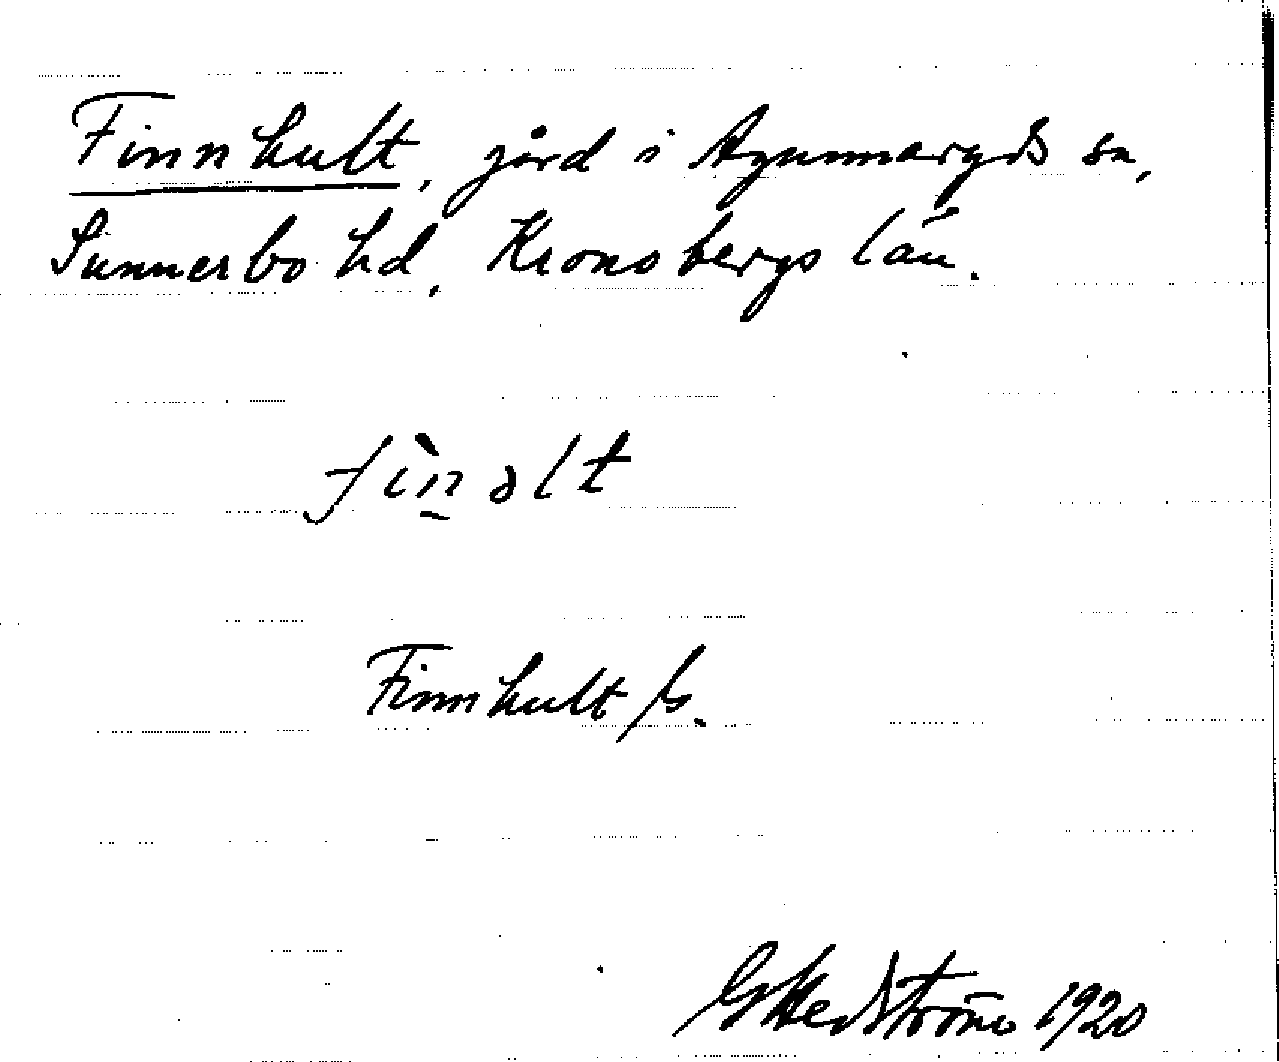 Finnhult, gård i Agunnaryds sn,
Sunnerbo hd, Kronobergs län.
fìn̲ɔlt
Finnhult Js.
G Hedström 1920